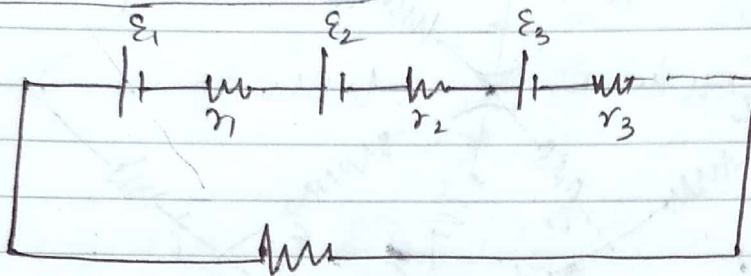 ε₁ ε₂ ε₃
r₁ r₂ r₃